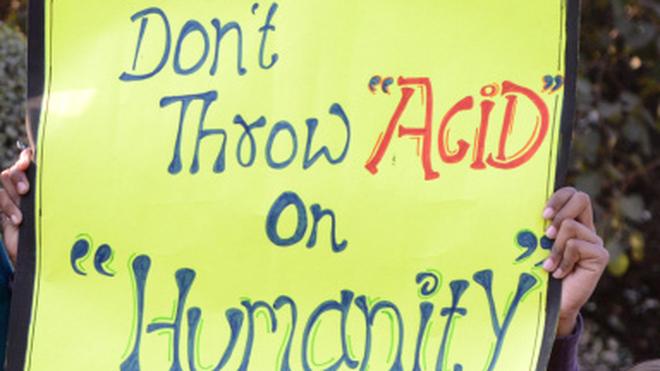 Don't
Throw "ACiD"
On
"Humanity"